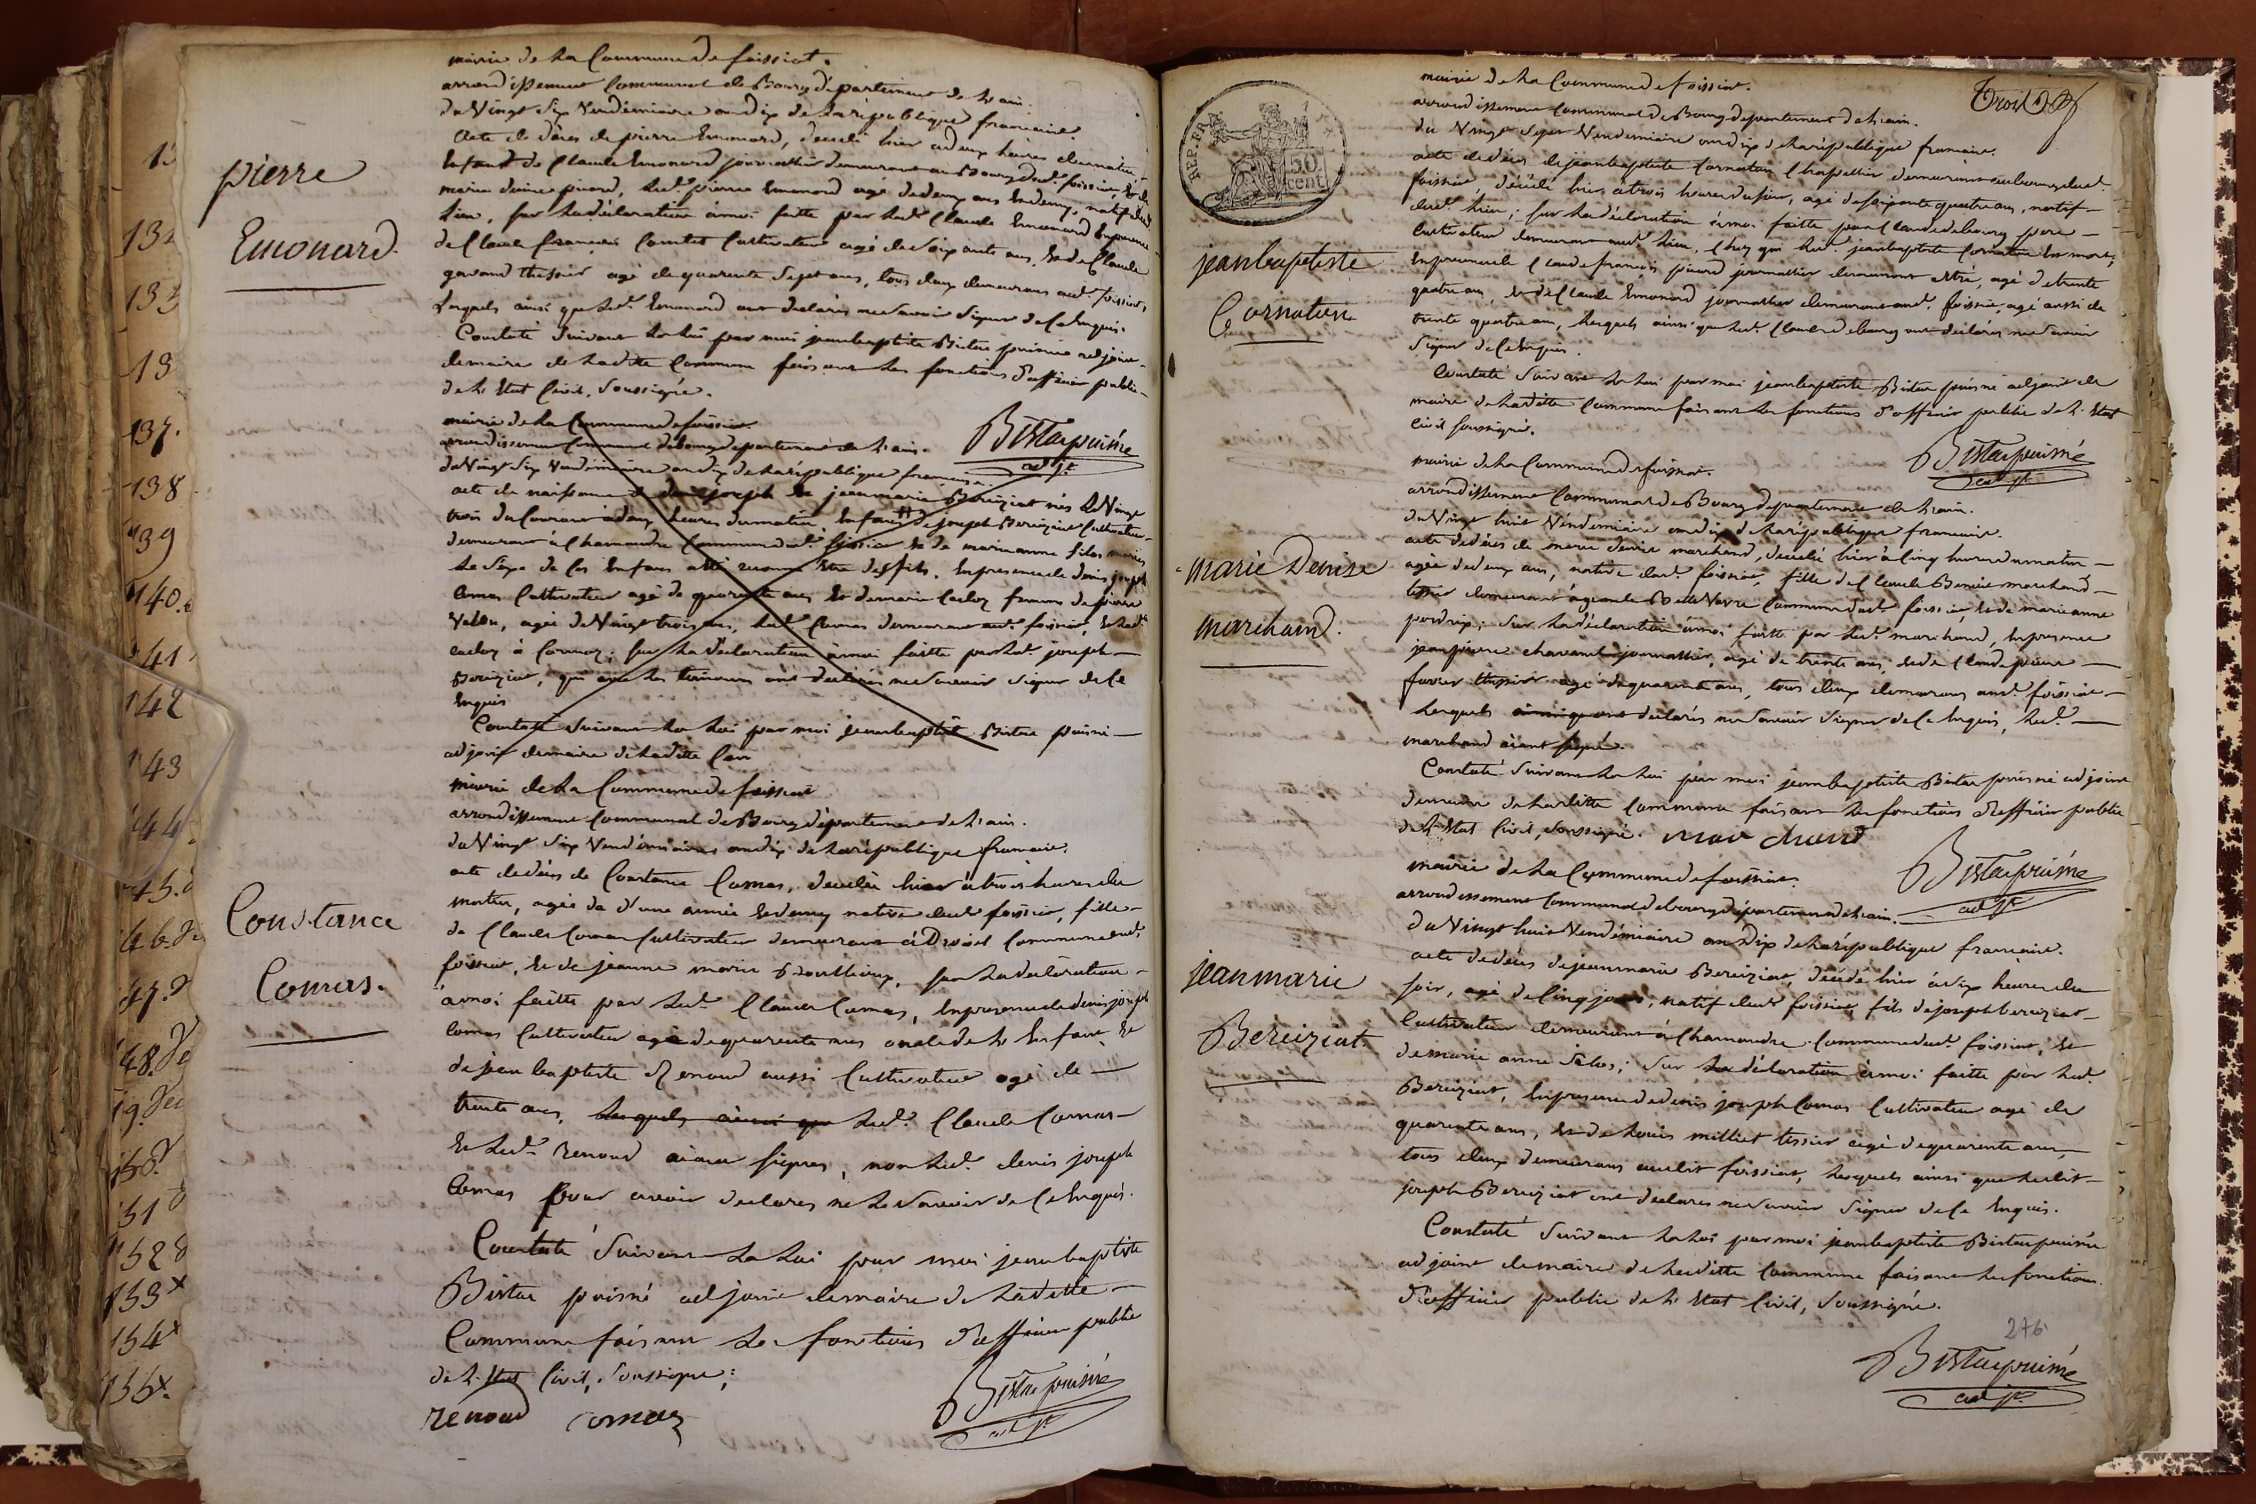 pierre
Emonard.
mairie de la Commune de foissiat.
arrondissement Communal de Bourg département de l'ain.
du Vingt Six Vendémiaire an dix de la république francaise.
Acte de décès de pierre Emonard, décédé hier à deux heures du matin,
Enfant de Claude Emonard journallier demeurant au Bourg dud.t foissiat, Et de
marie denise picard, led.t pierre Emonard agé de deux ans Et demy, natif dud.t
lieu, sur la déclaration à moi faitte par led.t Claude Emonard En presence
de Claude francois Comtet Cultivateur agé de Soixante ans, Et de Claude
gavand thessier agé de quarente Sept ans, tous deux demeurans aud.t foissiat,
Lesquels ainsi que led.t Emonard ont declarés ne Savoir Signer de Ce Enquis.
Constaté Suivant la Loi par moi jeanbaptiste Bistac puisné adjoint
de maire de la ditte Commune faisant les fonctions d'officier public
de l'Etat Civil, Soussigné.
Bistac puisné
adj.t
mairie de la Commune de foissiat
arrondissement Communal de bourg département de l'ain.
du Vingt Six Vendémiaire an dix de la république francaise.
acte de naissance de denis joseph Et jeanmarie Bereiziat nés Le Vingt
trois du Courant à deux heures du matin, Enfans de joseph Bereiziat Cultivateur
demeurant à Chamandre Commune dud.t foissiat Et de marieanne filos mariés
Le Sexe de Ces Enfans a été reconnu Etre des fils. En presence de denis joseph
Comas Cultivateur agé de quarente ans Et de marie Cadoz femme de pierre
Velon, agée de Vingt trois ans, led.t Comas demeurant aud.t foissiat, Et lad.te
cadoz à Cormoz; Sur La déclaration à moi faitte par led.t joseph
Bereiziat, qui avec les témoins ont déclarés ne Savoir Signer de Ce
Enquis
Constaté Suivant la Loi par moi jeanbaptiste Bistac puisné
adjoint de maire de la ditte Com
Constance
Comas.
mairie de la Commune de foissiat
arrondissement Communal de Bourg département de l'ain.
du Vingt Six Vendémiaire an dix de la république francaise.
acte de décès de Constance Comas, decedée hier à trois heures du
matin, agée de d'une année Et demy native dud.t foissiat, fille
de Claude Comas Cultivateur demeurant à Commune dud.t
foissiat, Et de jeanne marie sur la déclaration
à moi faitte par led.t Claude Comas, En presence de denis joseph
Comas Cultivateur agé de quarente ans oncle de l'Enfant, Et
de jean baptiste Renoud aussi Cultivateur agé de
trente ans, lesquels ainsi que led.t Claude Comas
Et led.t renoud aiant signés, non led.t denis joseph
Comas pour avoir declarés ne le Savoir de Ce Enquis.
Constaté Suivant La Loi par moi jeanbaptiste
Bistac puisné adjoint de maire de la ditte
Commune faisant les fonctions d'officier public
de l'Etat Civil, Soussigné;
renoud comas
Bistac puisné
adj.t
REP. FRA
50
cent
jeanbaptiste
Cornaton
mairie de la Commune de foissiat.
arrondissement Communal de Bourg département de l'ain.
du Vingt Sept Vendémiaire an dix de la république francaise.
acte de décès de jeanbaptiste Cornaton Chapellier demeurant au bourg dud.t
foissiat, décédé hier à trois heures du soir, agé de soixante quatre ans, natif
dud.t lieu; sur la déclaration à moi faitte par Claude debourg pere
Cultivateur demeurant aud.t lieu, Chez qui led.t jeanbaptiste Cornaton Est mort,
En presence de Claude francois picard journallier demeurant agé de trente
quatre ans, Et de Claude Emonard journallier demeurant aud.t foissiat, agé aussi de
trente quatre ans, Lesquels ainsi que led.t Claude debourg ont déclarés ne Savoir
Signer de Ce Enquis.
Constaté Suivant la Loi par moi jeanbaptiste Bistac puisné adjoint de
maire de la ditte Commune faisant les fonctions d'officier public de l'Etat
Civil soussigné.
Bistac puisné
adj.t
marie Denise
marchand.
mairie de la Commune de foissiat.
arrondissement Communal de Bourg département de l'ain.
du Vingt huit Vendémiaire an dix de la république francaise.
acte de décès de marie denise marchand, decedée hier à Cinq heures du matin
agée de deux ans, native dud.t foissiat, fille de Claude Benoit marchand
tissier demeurant à Commune dud.t foissiat, Et de marieanne
perdrix; Sur la déclaration à moi faitte par led.t marchand, En presence
jeanpierre chavant journallier, agé de trente ans, Et de Claude pierre
favier thessier agé de quarente ans, tous deux demeurans aud.t foissiat
Lesquels ont déclarés ne Savoir Signer de Ce Enquis, led.t
marchand aiant signé.
Constaté Suivant la Loi par moi jeanbaptiste Bistac puisné adjoint
de maire de la ditte Commune faisant les fonctions d'officier public
de l'Etat Civil, Soussigné. marchand
Bistac puisné
adj.t
jeanmarie
Bereiziat.
mairie de la Commune de foissiat.
arrondissement Communal de bourg département de l'ain.
du Vingt huit Vendémiaire an Dix de la république francaise.
acte de décès de jeanmarie Bereiziat, décédé hier à dix heures du
soir, agé de Cinq jours, natif dud.t foissiat fils de joseph bereiziat
Cultivateur demeurant à Chamandre Commune dud.t foissiat, Et
de marie anne filos; Sur La déclaration à moi faitte par led.t
Bereiziat, En presence de denis joseph Comas Cultivateur agé de
quarente ans, Et de Louis milliet tissier agé de quarente ans,
tous deux demeurans audit foissiat, Lesquels ainsi que ledit
joseph Bereiziat ont déclarés ne Savoir Signer de Ce Enquis.
Constaté Suivant la Loi par moi jeanbaptiste Bistac puisné
adjoint de maire de la ditte Commune faisant les fonctions
d'officier public de l'Etat Civil, Soussigné.
276
Bistac puisné
adj.t
137.
138
139
140.
141
142
143
144
147.
148.
151
152
153
154